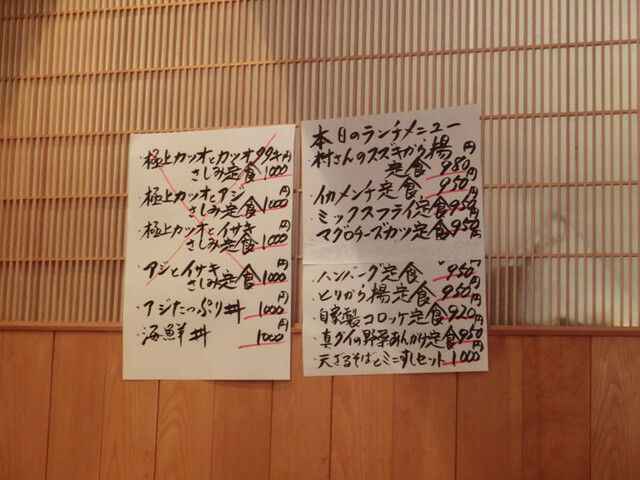 極上カツオとカツオタタキ円
さしみ定食1000
極上カツオとアジ 円
さしみ定食1000
極上カツオとイサキ 円
さしみ定食1000
アジとイサキ 円
さしみ定食1000
・アジたっぷり丼 1000円
・海鮮丼 1000円
本日のランチメニュー
・村さんのスズキから揚 円
定食 980
・イカメンチ定食 950円
・ミックスフライ定食950円
・マグロチーズカツ定食950円
・ハンバーグ定食 950円
・とりから揚定食 950円
・自家製コロッケ定食920円
・真ダイの野菜あんかけ定食950円
・天ざるそばとミニすしセット 1000円